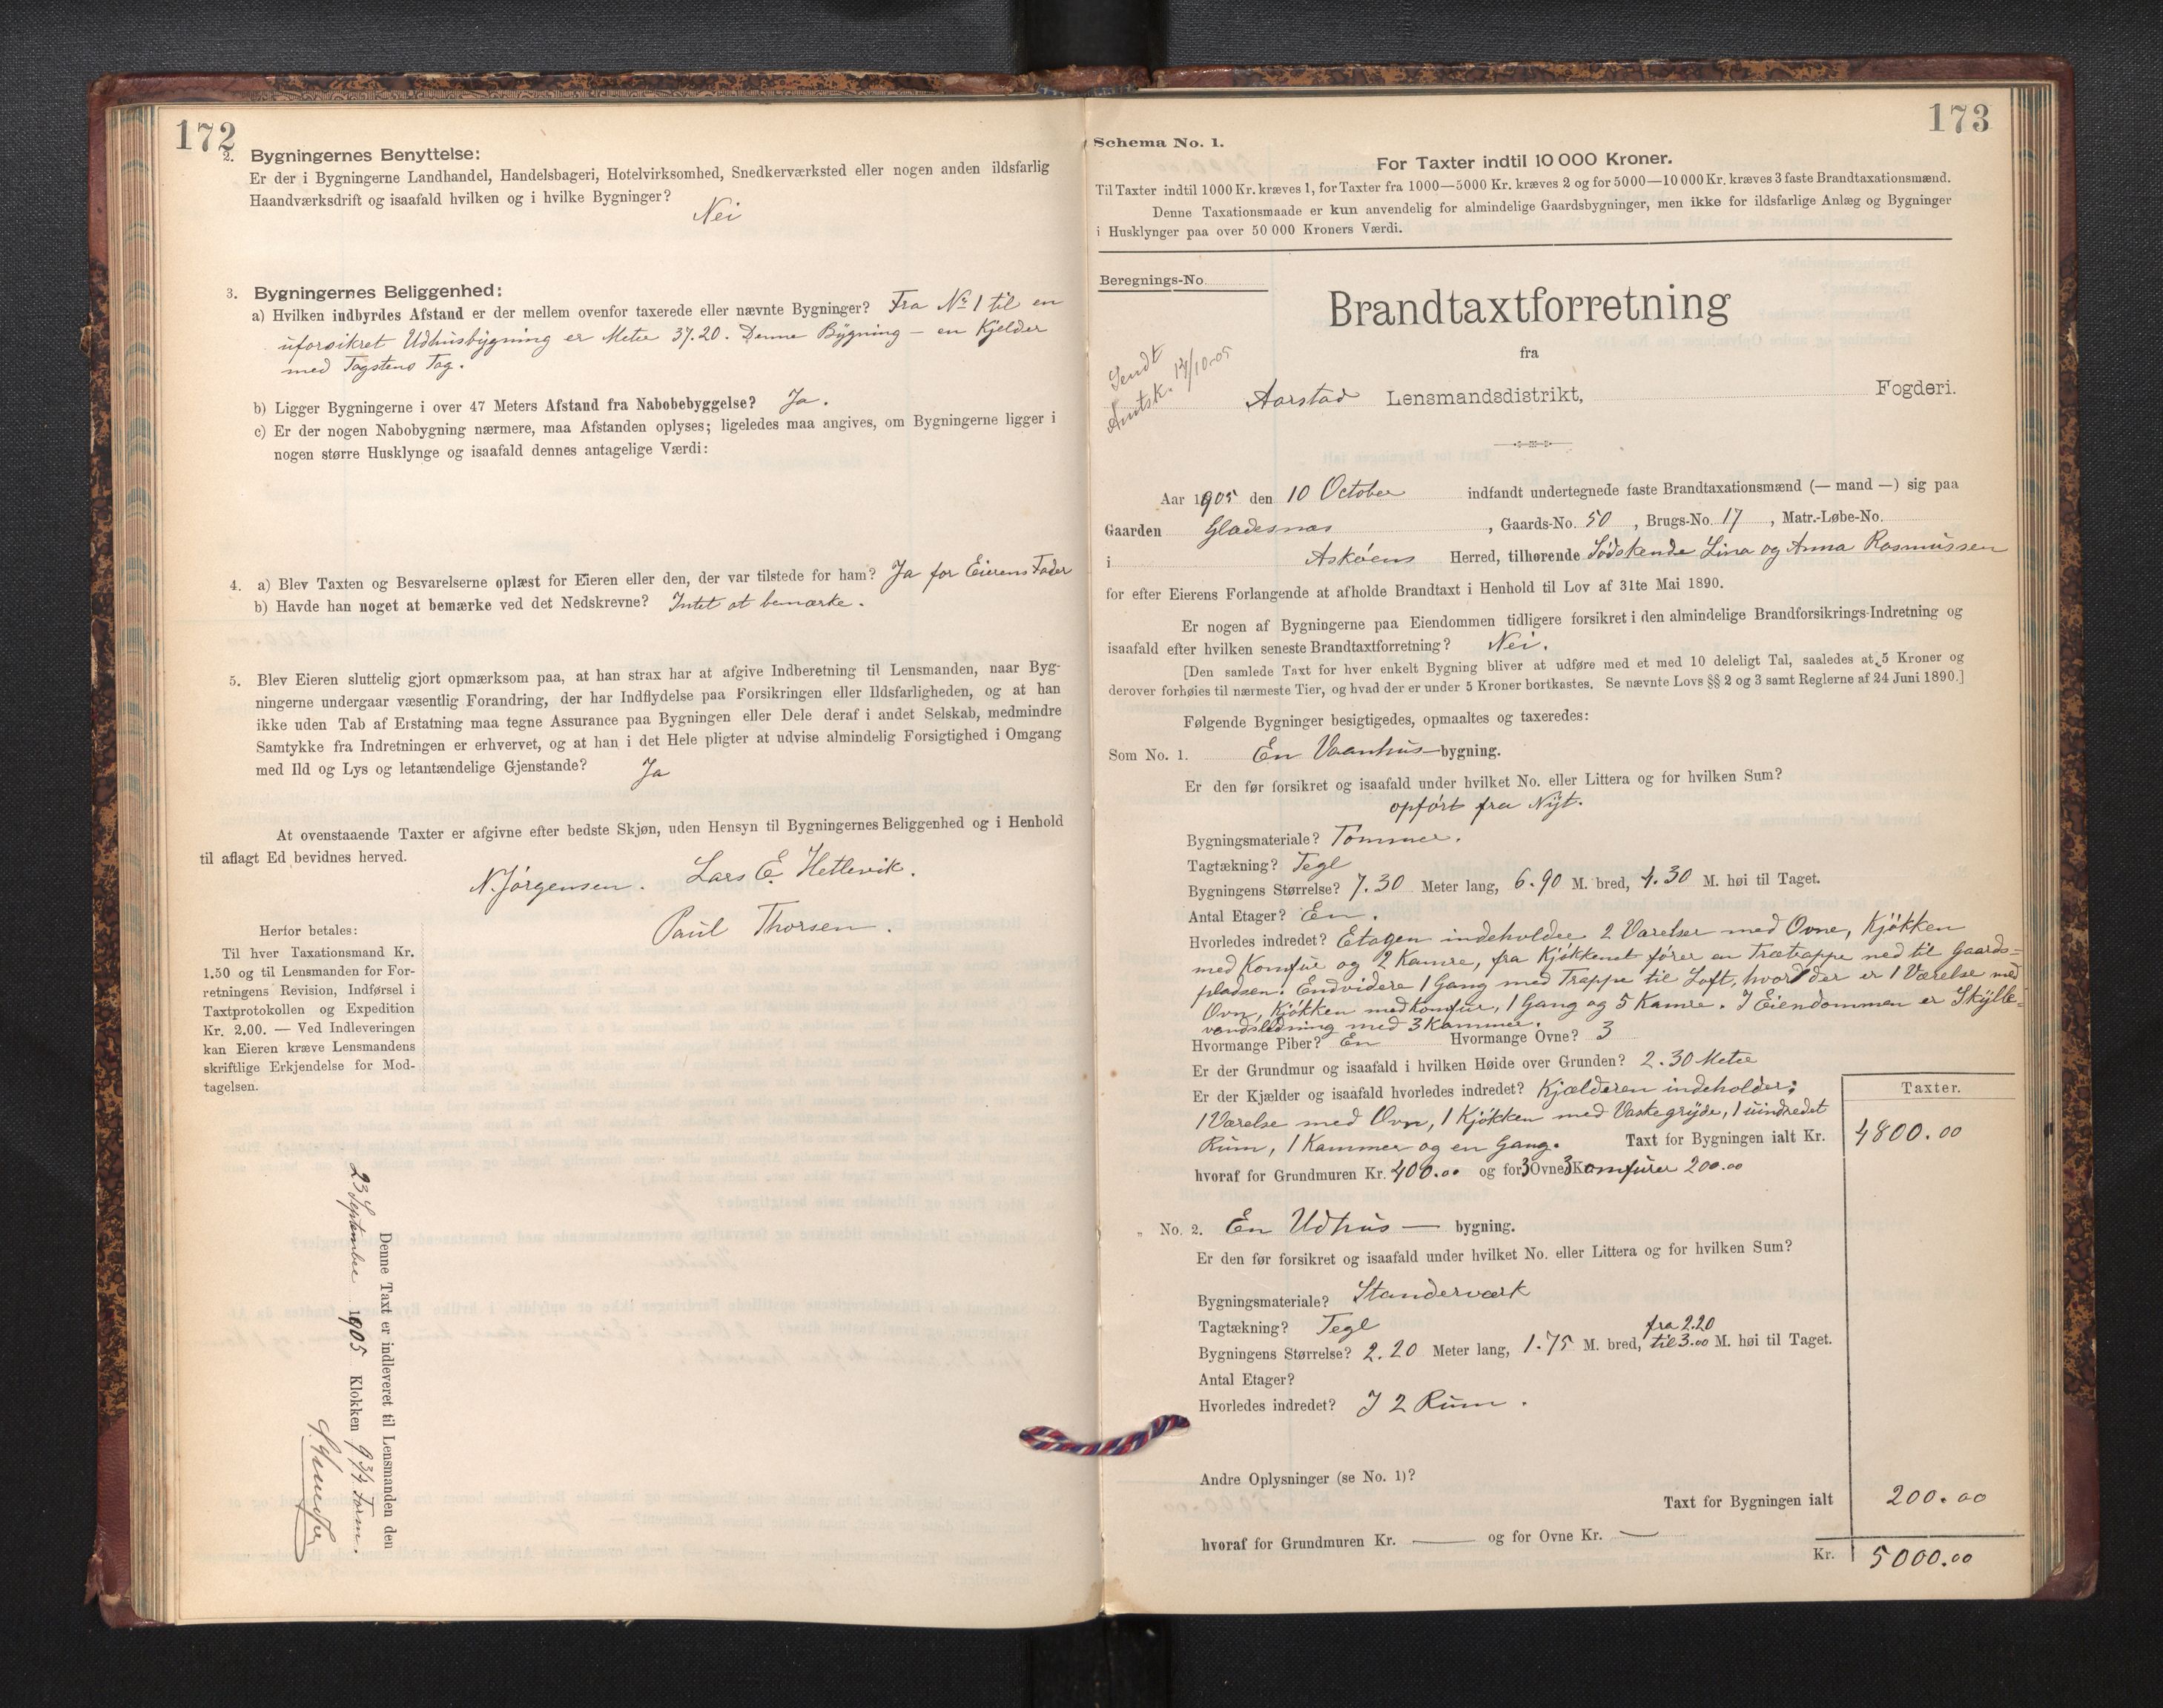 172
2. Bygningernes Benyttelse:
Er der i Bygningerne Landhandel, Handelsbageri, Hotelvirksomhed, Snedkerværksted eller nogen anden ildsfarlig
Haandværksdrift og isaafald hvilken og i hvilke Bygninger?
Nei
3. Bygningernes Beliggenhed:
a) Hvilken indbyrdes Afstand er der mellem ovenfor taxerede eller nævnte Bygninger? Fra No 1 til en
uforsikret Udhusbygning er Meter 37.20. Denne Bygning – en Kjelder
med Tagstens Tag.
b) Ligger Bygningerne i over 47 Meters Afstand fra Nabobebyggelse? Ja.
c) Er der nogen Nabobygning nærmere, maa Afstanden oplyses; ligeledes maa angives, om Bygningerne ligger i
nogen større Husklynge og isaafald dennes antagelige Værdi:
4. a) Blev Taxten og Besvarelserne oplæst for Eieren eller den, der var tilstede for ham? Ja for Eierens Fader
b) Havde han noget at bemærke ved det Nedskrevne? Intet at bemærke.
5. Blev Eieren sluttelig gjort opmærksom paa, at han strax har at afgive Indberetning til Lensmanden, naar Byg-
ningerne undergaar væsentlig Forandring, der har Indflydelse paa Forsikringen eller Ildsfarligheden, og at han
ikke uden Tab af Erstatning maa tegne Assurance paa Bygningen eller Dele deraf i andet Selskab, medmindre
Samtykke fra Indretningen er erhvervet, og at han i det Hele pligter at udvise almindelig Forsigtighed i Omgang
med Ild og Lys og letantændelige Gjenstande? Ja
At ovenstaaende Taxter er afgivne efter bedste Skjøn, uden Hensyn til Bygningernes Beliggenhed og i Henhold
til aflagt Ed bevidnes herved.
N. Jørgensen. Lars E. Hetlevik.
Paul Thorsen.
Herfor betales:
Til hver Taxationsmand Kr.
1.50 og til Lensmanden for For-
retningens Revision, Indførsel i
Taxtprotokollen og Expedition
Kr. 2.00. — Ved Indleveringen
kan Eieren kræve Lensmandens
skriftlige Erkjendelse for Mod-
tagelsen.
Denne Taxt er indleveret til Lensmanden den
23 September 1905 Klokken 9 3/4 Form.
173
Schema No. 1.
For Taxter indtil 10 000 Kroner.
Til Taxter indtil 1000 Kr. kræves 1, for Taxter fra 1000—5000 Kr. kræves 2 og for 5000—10 000 Kr. kræves 3 faste Brandtaxationsmænd.
Denne Taxationsmaade er kun anvendelig for almindelige Gaardsbygninger, men ikke for ildsfarlige Anlæg og Bygninger
i Husklynger paa over 50 000 Kroners Værdi.
Beregnings-No.
Brandtaxtforretning
fra
Sendt
Amtsk. 13/10-05
Aarstad Lensmandsdistrikt, Fogderi.
Aar 1905 den 10 October indfandt undertegnede faste Brandtaxationsmænd (— mand —) sig paa
Gaarden Gladesnæs, Gaards-No. 50, Brugs-No. 17, Matr.-Løbe-No.
i Askøens Herred, tilhørende Sødskende Lina og Anna Rasmussen
for efter Eierens Forlangende at afholde Brandtaxt i Henhold til Lov af 31te Mai 1890.
Er nogen af Bygningerne paa Eiendommen tidligere forsikret i den almindelige Brandforsikrings-Indretning og
isaafald efter hvilken seneste Brandtaxtforretning? Nei.
[Den samlede Taxt for hver enkelt Bygning bliver at udføre med et med 10 deleligt Tal, saaledes at 5 Kroner og
derover forhøies til nærmeste Tier, og hvad der er under 5 Kroner bortkastes. Se nævnte Lovs §§ 2 og 3 samt Reglerne af 24 Juni 1890.]
Følgende Bygninger besigtigedes, opmaaltes og taxeredes:
Som No. 1. En Vaanhus-bygning.
Er den før forsikret og isaafald under hvilket No. eller Littera og for hvilken Sum?
opført fra Nyt.
Bygningsmateriale? Tømmer.
Tagtækning? Tegl
Bygningens Størrelse? 7.30 Meter lang, 6.90 M. bred, 4.30 M. høi til Taget.
Antal Etager? En.
Hvorledes indredet? Etagen indeholder 2 Værelser med Ovne, Kjøkken
med Komfur og 2 Kamre, fra Kjøkkenet fører en Trætrappe ned til Gaards=
pladsen. Endvidere 1 Gang med Trappe til Loft, hvor der er 1 Værelse med
Ovn, Kjøkken med Komfur, 1 Gang og 5 Kamre. I Eiendommen er Skylle=
vandsledning med 3 Kummer.
Hvormange Piber? En Hvormange Ovne? 3
Er der Grundmur og isaafald i hvilken Høide over Grunden? 2.30 Meter
Er der Kjælder og isaafald hvorledes indredet? Kjælderen indeholder:
1 Værelse med Ovn, 1 Kjøkken med Vaskegryde, 1 uindredet
Rum, 1 Kammer og en Gang.
Taxter.
Taxt for Bygningen ialt Kr. 4800.00
hvoraf for Grundmuren Kr. 400.00 og for 3 Ovne 3 Komfurer 200.00
„ No. 2. En Udhus — bygning.
Er den før forsikret og isaafald under hvilket No. eller Littera og for hvilken Sum?
Bygningsmateriale? Standerværk
Tagtækning? Tegl
fra 2.20
Bygningens Størrelse? 2.20 Meter lang, 1.75 M. bred, til 3.00 M. høi til Taget.
Antal Etager?
Hvorledes indredet? I 2 Rum.
Andre Oplysninger (se No. 1)?
Taxt for Bygningen ialt 200.00
hvoraf for Grundmuren Kr. — og for Ovne Kr. —
Kr. 5000.00